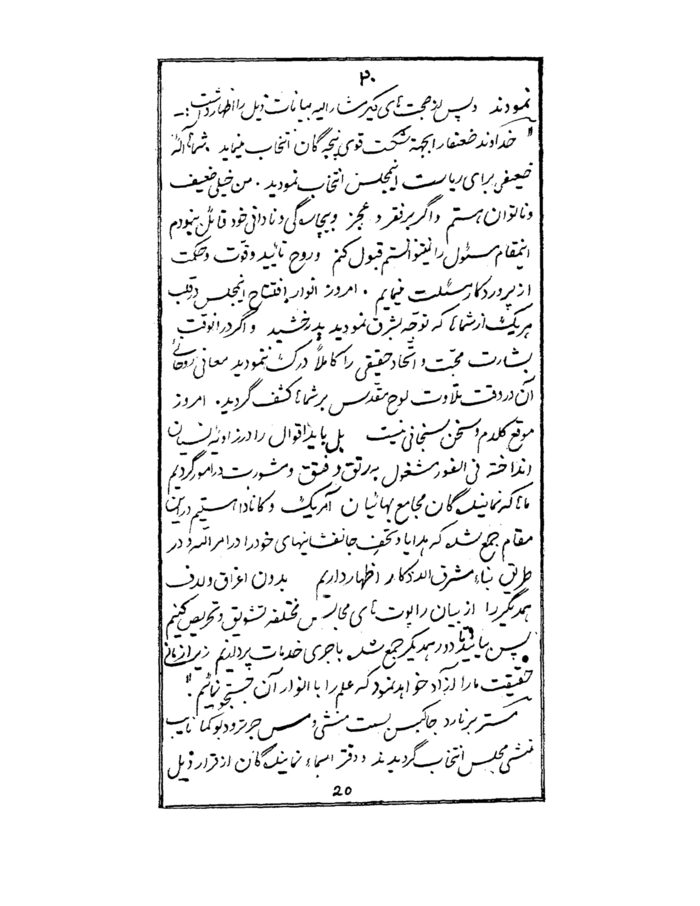 ۲۰
نمودند و پس از صحبت های دیگر مشارالیه بیانات ذیل را اظهار داشت :ـ
" خداوند ضعفا را بجهة شکست قوی پنجه گان انتخاب مینماید . شماها آلة
ضعیفی برای ریاست اینمجلس انتخاب نمودید . من خیلی ضعیف
و ناتوان هستم و اگر بر فقر و عجز و بیچاره گی و نادانی خود قائل نبودم
اینمقام مسئول را نمیتوانستم قبول کنم و روح تائید و قوّت و حکمت
از پروردگار مسئلت مینمایم . امروز انوار افتتاح اینمجلس در قلب
هر یک از شماها که توجّه بشرق نمودید بدرخشید و اگر در آنوقت
بشارت محبّت و اتّحاد حقیقی را کاملاً درک ننمودید معانی روحانی
آن در وقت تلاوت لوح مقدّس بر شماها کشف گردید . امروز
موقع کلام و سخن سنجانی نیست بل باید اقوال را در زاویه نسیان
انداخته فی الفور مشغول به رتق و فتق و مشورت در امور گردیم
ماها که نماینده گان مجامع بهائیان آمریک و کانادا هستیم در این
مقام جمع شده که هدایا و تحف جانفشانیهای خود را در امرالله و در
طریق بناء مشرق الاذکار اظهار داریم بدون اغراق و لاف
همدیگر را از بیان راپورت های مجالس مختلفه تشویق و تحریص کنیم
پس بیائید تا دور همدیگر جمع شده باجرای خدمات پردازیم زیرا زمانی
حقیقت ما را آزاد خواهد نمود که علم را با انوار آن جستجو نمائیم "
مستر برنارد جاکبسن بسمت منشی و مس جرترود بوکما نایب
منشی مجلس انتخاب گردیدند و دفتر اسماء نماینده گان از قرار ذیل
20